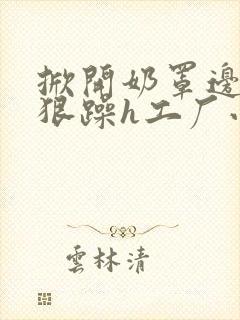 掀開奶罩邊
狠躁h工厂
雲林清